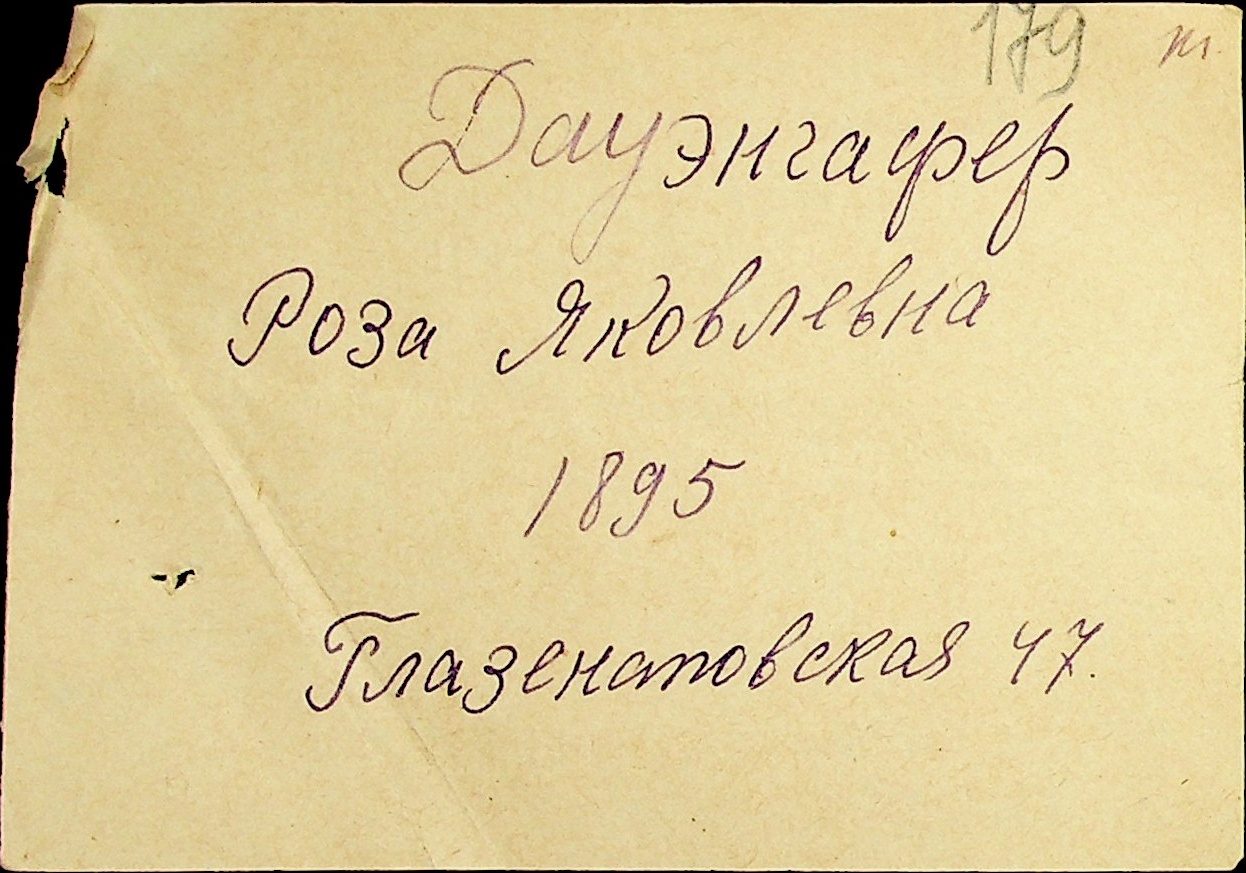 179
Дауэнгафер
Роза Яковлевна
1895
Глазенатовская 47.